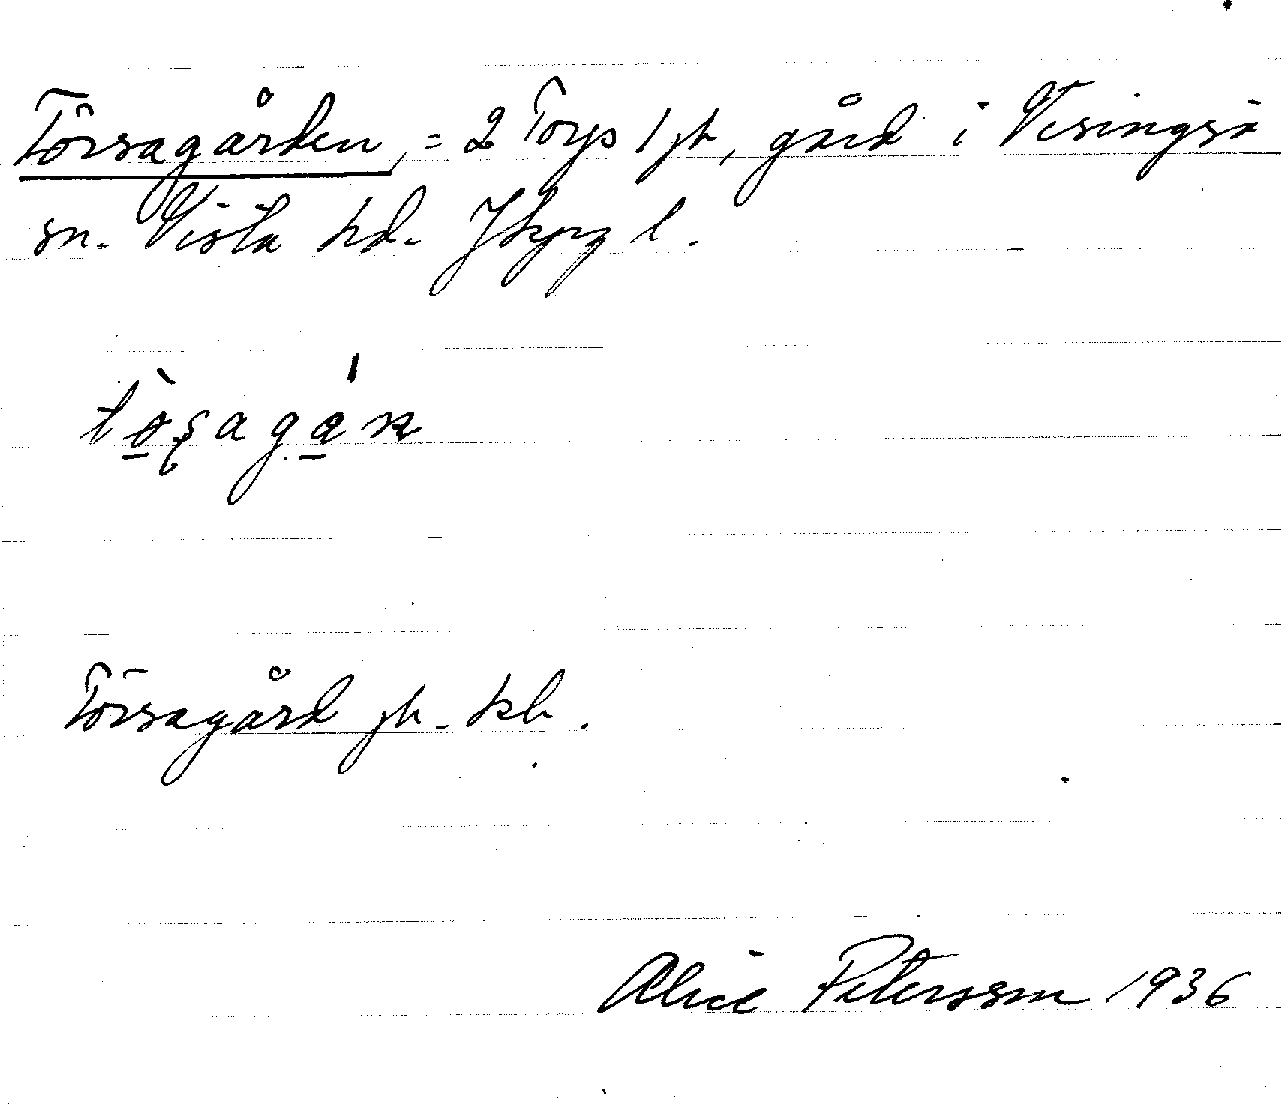 Törsagården, = 2 Torp 1 jb, gård i Visingsö
sn. Vista hd. Jkpg l.
tösagán
Törsagård jb. kb.
Alice Petersson 1936